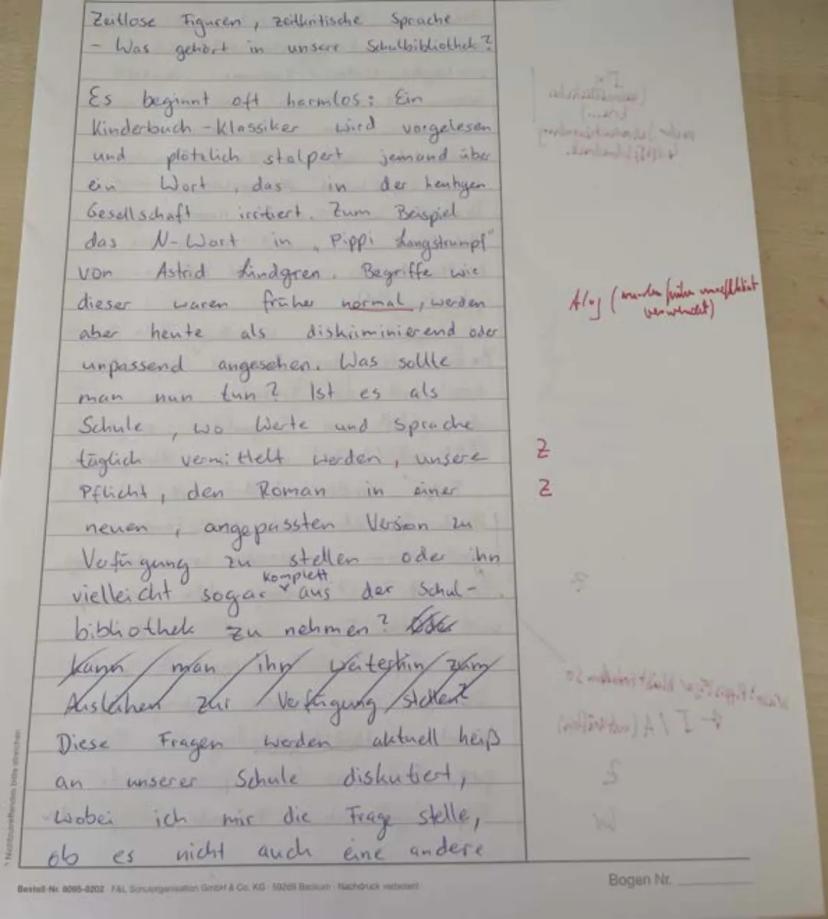 Zeitlose Figuren, zeitkritische Sprache
- Was gehört in unsere Schulbibliothek?
Es beginnt oft harmlos: Ein
Kinderbuch-Klassiker wird vorgelesen
und plötzlich stolpert jemand über
ein Wort, das in der heutigen
Gesellschaft irritiert. Zum Beispiel
das N-Wort in „Pippi Langstrumpf"
von Astrid Lindgren. Begriffe wie
dieser waren früher normal, werden
A (wurden früher unreflektiert
verwendet)
aber heute als diskriminierend oder
unpassend angesehen. Was sollte
man nun tun? Ist es als
Schule, wo Werte und Sprache
täglich vermittelt werden, unsere
Z
Pflicht, den Roman in einer
Z
neuen, angepassten Version zu
Verfügung zu stellen oder ihn
vielleicht sogar komplett aus der Schul-
bibliothek zu nehmen?
Kann man ihn weiterhin zum
Ausleihen zur Verfügung stellen?
Diese Fragen werden aktuell heiß
an unserer Schule diskutiert,
wobei ich mir die Frage stelle,
ob es nicht auch eine andere
Bestell-Nr. 8095-0202 F&L Schulorganisation GmbH & Co. KG · 59269 Beckum · Nachdruck verboten!
Bogen Nr.
* Nichtzutreffendes bitte streichen